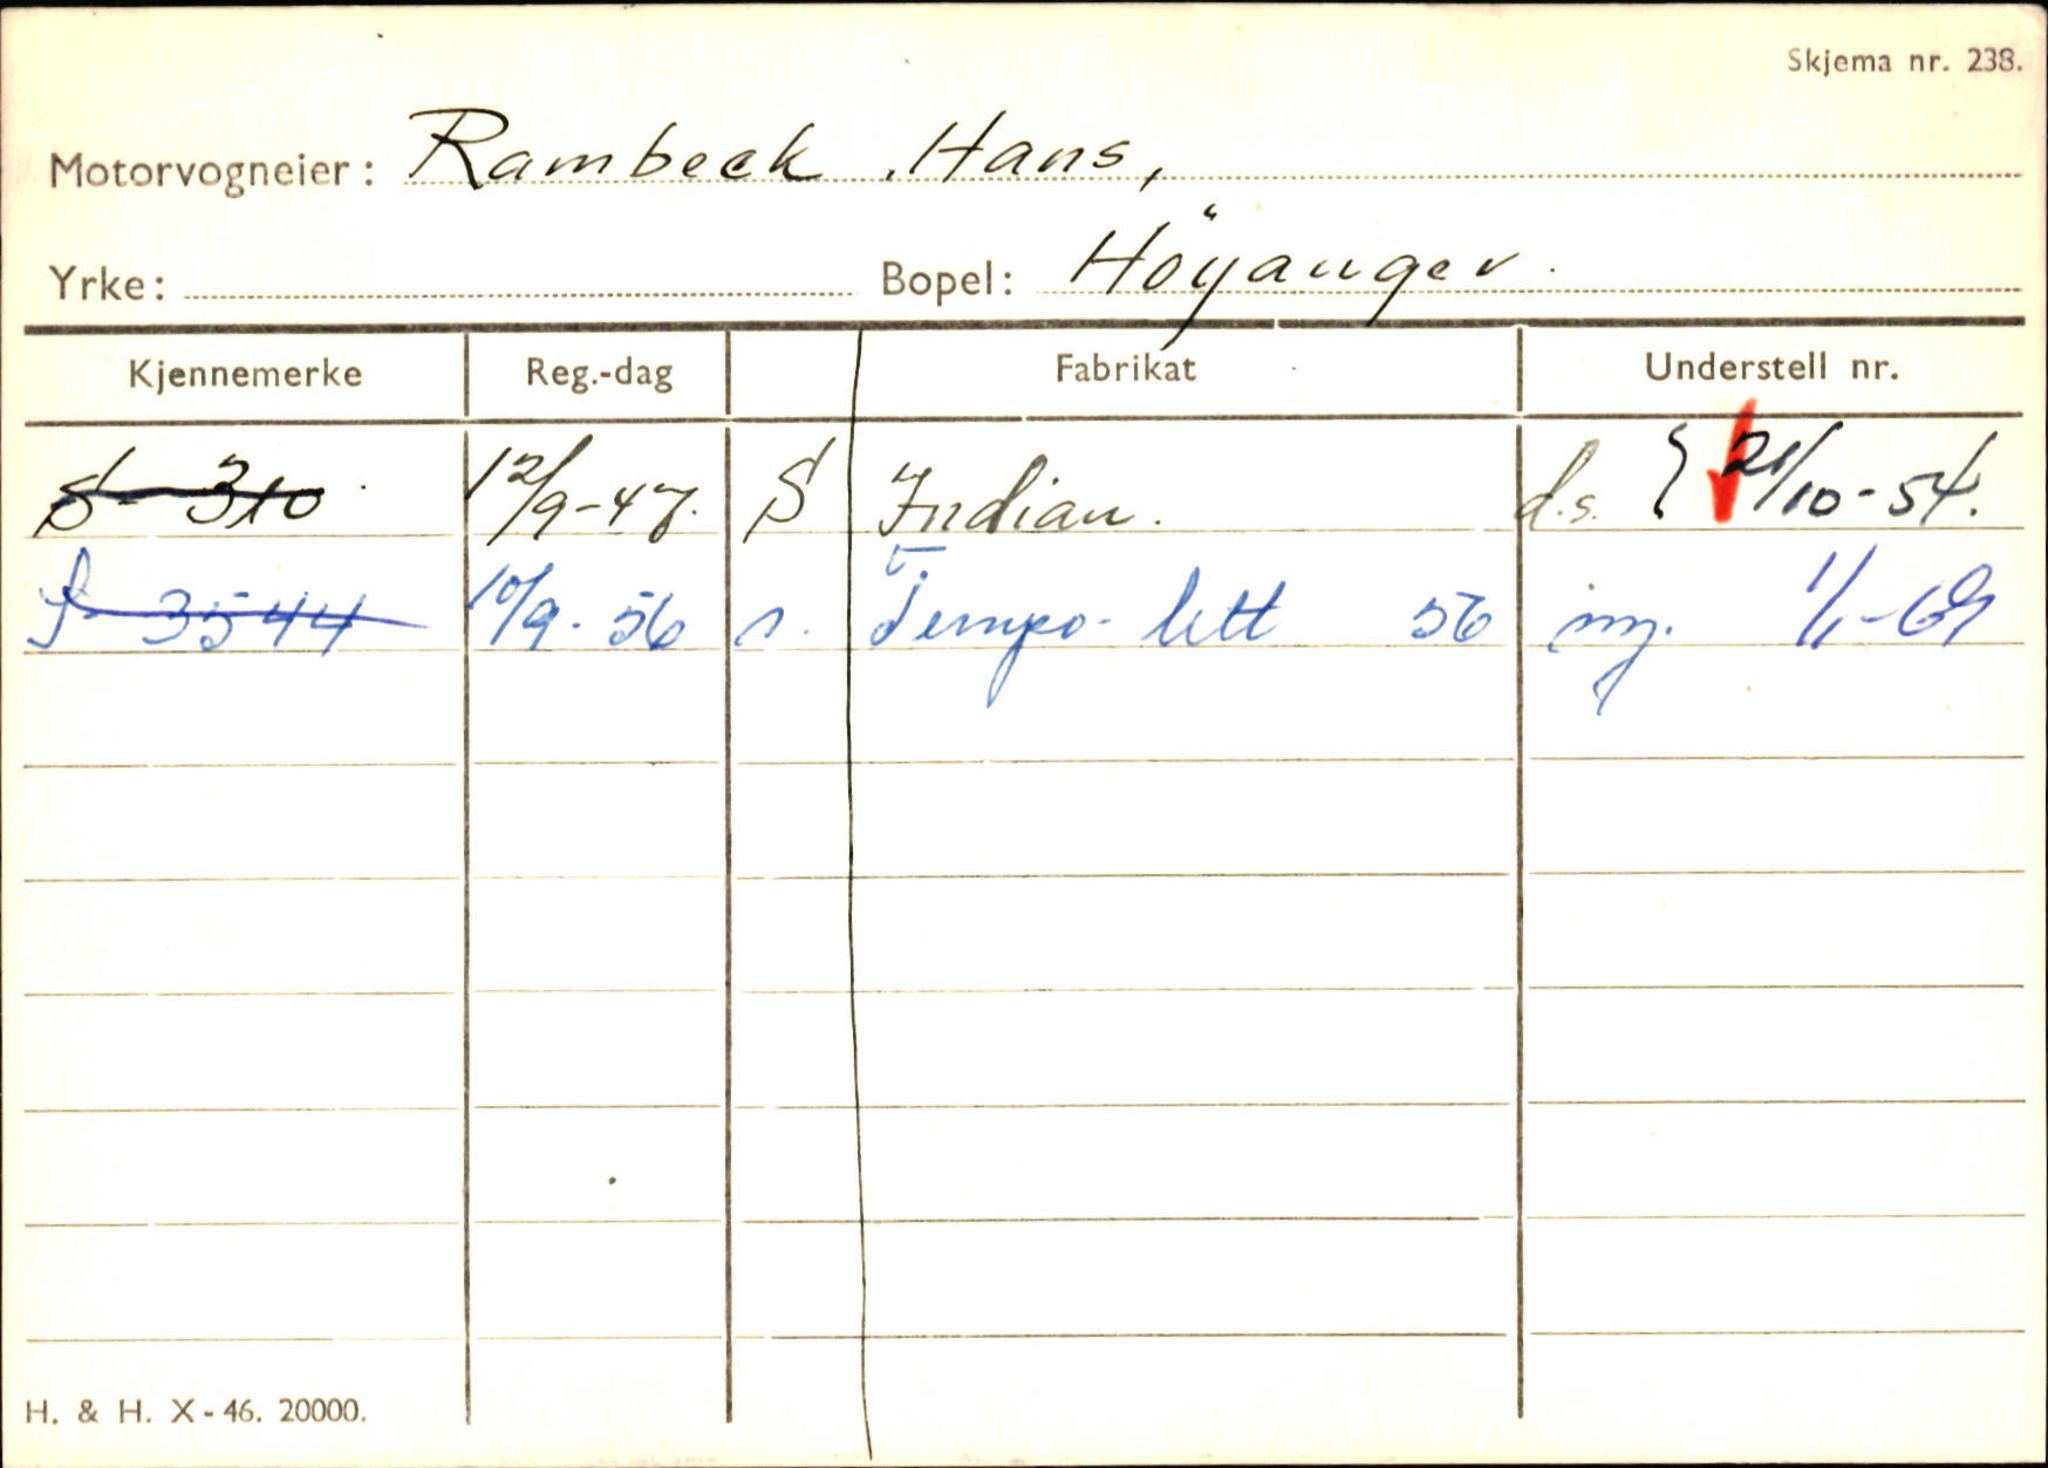 Skjema nr. 238.
Motorvogneier: Rambeck, Hans,
Yrke: Bopel: Höyanger.
Kjennemerke Reg.-dag Fabrikat Understell nr.
S-310 12/9-47. S Indian. d.s. 21/10-54.
S-3544 10/9-56 n. Tempo-lett 56 1/1-69
H. & H. X-46. 20000.